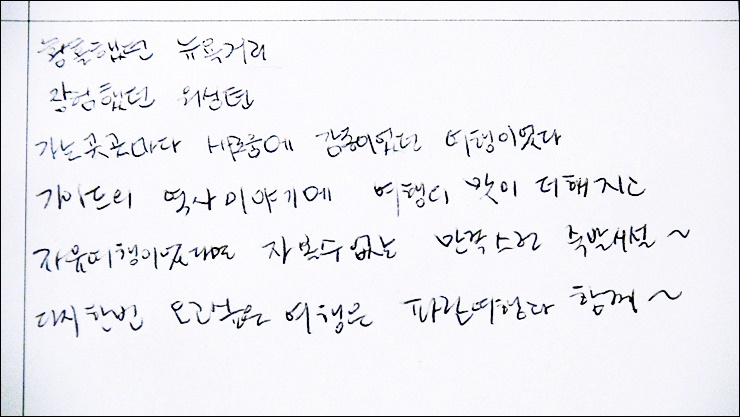 황홀했던 뉴욕거리
광험했던 워싱턴
가는곳곳마다 새로움에 감동이었던 여행이었다
가이드의 역사이야기에 여행의 맛이 더해지고
자유여행이었다면 자볼수없는 만족스런 숙박시설~
다시한번 오고싶은 여행은 파란여행과 함께~